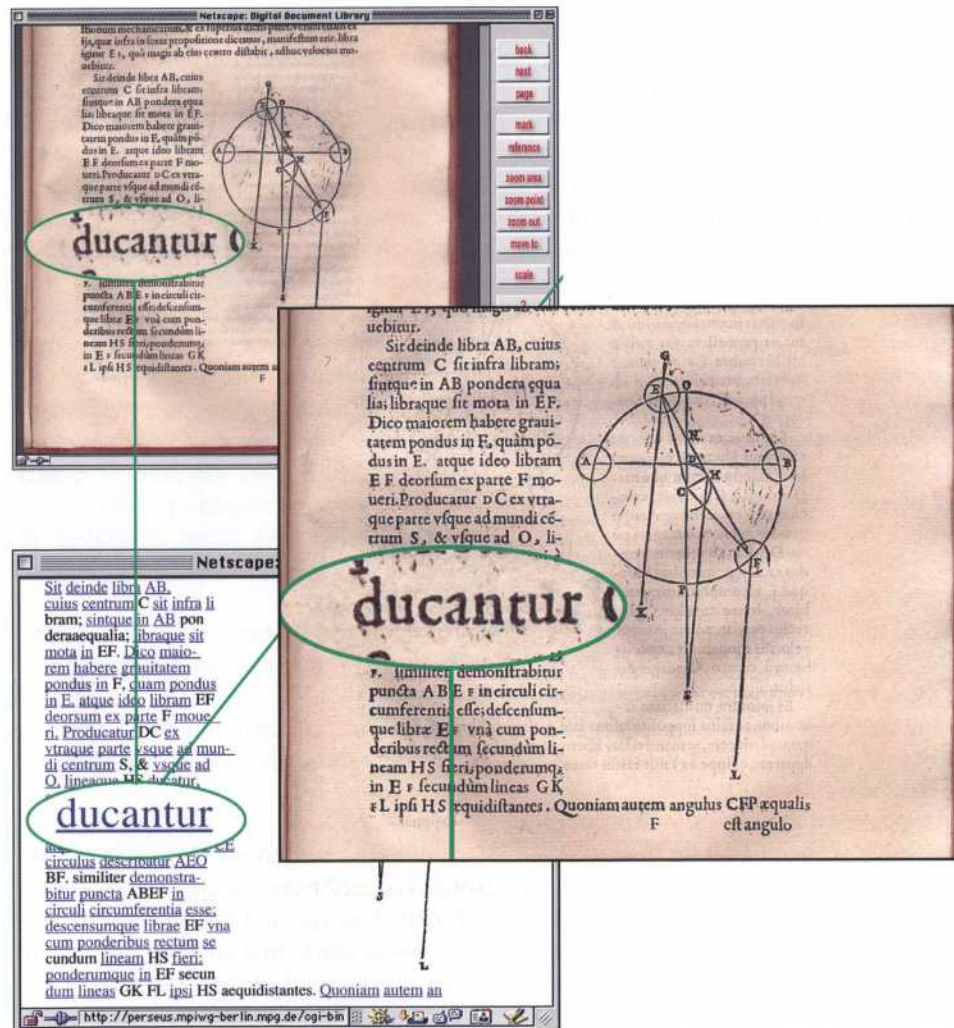 Netscape: Digital Document Library
itionum mechanicarum, & ex superius dictis patet. verùm etiam ex
ijs, quæ infra in fossa propositione dicemus, manifestum erit. libra
igitur E F, quò magis ab eius centro distabit, adhuc velocius mo-
uebitur.
Sit deinde libra AB, cuius
centrum C sit infra libram;
sintque in AB pondera æqua
lia; libraque sit mota in EF.
Dico maiorem habere graui-
tatem pondus in F, quàm põ-
dus in E. atque ideo libram
E F deorsum ex parte F mo-
ueri. Producatur D C ex vtra-
que parte vsque ad mundi cẽ-
trum S, & vsque ad O, li-
ducantur
F. similiter demonstrabitur
puncta A B E F in circuli cir-
cumferentia esse; descensum-
que libræ E F vnà cum pon-
deribus rectum secundùm li-
neam HS fieri; ponderumq;
in E F secundùm lineas G K
F L ipsi HS æquidistantes. Quoniam autem a
F
G
E
O
N
A
D
B
H
C
F
P
K
S
back
next
page
mark
reference
zoom area
zoom point
zoom out
move to
scale
?
uebitur.
Sit deinde libra AB, cuius
centrum C sit infra libram;
sintque in AB pondera æqua
lia; libraque sit mota in EF.
Dico maiorem habere graui-
tatem pondus in F, quàm põ-
dus in E. atque ideo libram
E F deorsum ex parte F mo-
ueri. Producatur D C ex vtra-
que parte vsque ad mundi cẽ-
trum S, & vsque ad O, li-
ducantur
F. similiter demonstrabitur
puncta A B E F in circuli cir-
cumferentia esse; descensum-
que libræ E F vnà cum pon-
deribus rectum secundùm li-
neam HS fieri; ponderumq;
in E F secundùm lineas G K
F L ipsi HS æquidistantes. Quoniam autem angulus CFP æqualis
F est angulo
G
E
O
N
A
D
B
H
C
F
P
K
S
L
Netscape:
Sit deinde libra AB,
cuius centrum C sit infra li
bram; sintque in AB pon
deraaequalia; libraque sit
mota in EF. Dico maio-
rem habere grauitatem
pondus in F, quam pondus
in E. atque ideo libram EF
deorsum ex parte F moue-
ri. Producatur DC ex
vtraque parte vsque ad mun-
di centrum S, & vsque ad
O, lineaque HS ducatur,
ducantur
CE
circulus describatur AEO
BF. similiter demonstra-
bitur puncta ABEF in
circuli circumferentia esse;
descensumque librae EF vna
cum ponderibus rectum se
cundum lineam HS fieri;
ponderumque in EF secun
dum lineas GK FL ipsi HS aequidistantes. Quoniam autem an
S
L
http://perseus.mpiwg-berlin.mpg.de/cgi-bin